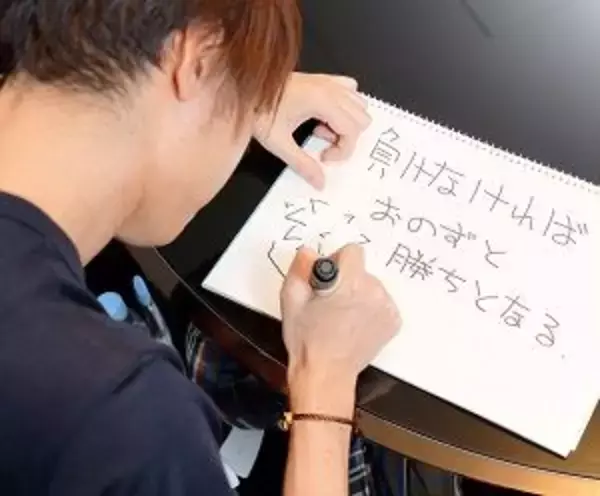 負けなければ
おのずと
勝ちとなる.